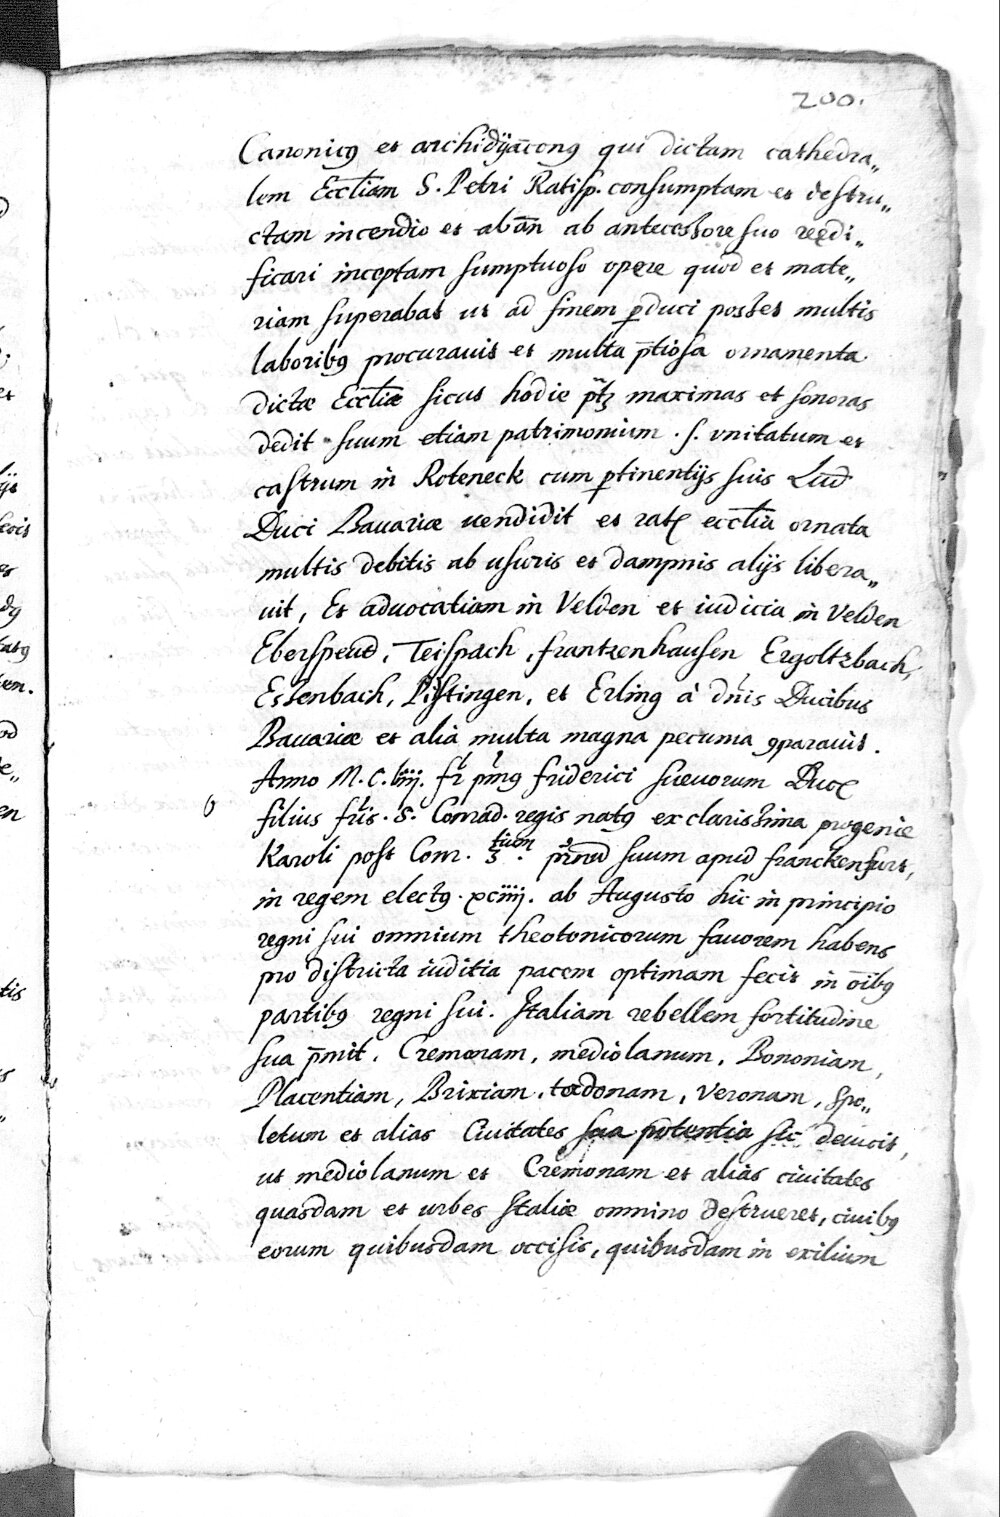 200.
Canonicꝯ et archidÿacōnꝯ qui dictam cathedra„
lem Eccl̄iam S. Petri Ratisp. consumptam et destru„
ctam incendio et ab an̄ ab antecessore suo reędi„
ficari inceptam sumptuoso opere quod et mate„
riam superabat ut ad finem ꝑduci posset multis
laboribꝯ procurauit et multa p̄tiosa ornamenta
dictæ Eccl̄iæ sicut hodie maximas et sonoras
dedit suum etiam patrimonium . s. vnitatum et
castrum in Roteneck cum ꝑtinentijs suis Lud̄
Duci Bauariæ uendidit et eccl̄ia ornata
multis debitis ab usuris et dampnis alijs libera„
uit, Et aduocatiam in Velden et iudicia in Velden
Eberspeud, Teispach, frantzenhausen Ergoltzbach,
Essenbach, Pistingen, et Erling à dn̄is Ducibus
Bauariæ et alia multa magna pecunia ꝯparauit.
Anno M. C. liiij. fr̄ p̄mꝯ friderici sueuorum Duc̄
filius fr̄is . S. Conrad. regis natꝯ ex clarissima progenie
Karoli post Conr. s. tium suum apud franckenfurt,
in regem electꝯ . xciiij. ab Augusto hic in principio
regni sui omnium theotonicorum fauorem habens
pro districta iuditia pacem optimam fecit in oībꝯ
partibꝯ regni sui. Italiam rebellem fortitudine
sua p̄mit. Cremonam, mediolanum, Bononiam,
Placentiam, Brixiam, tædonam, Veronam, Spo„
letum et alias Ciuitates sua potentia sic deuicit,
ut mediolanum et Cremonam et alias ciuitates
quasdam et urbes Italiæ omnino destrueret, ciuibꝯ
eorum quibusdam occisis, quibusdam in exilium